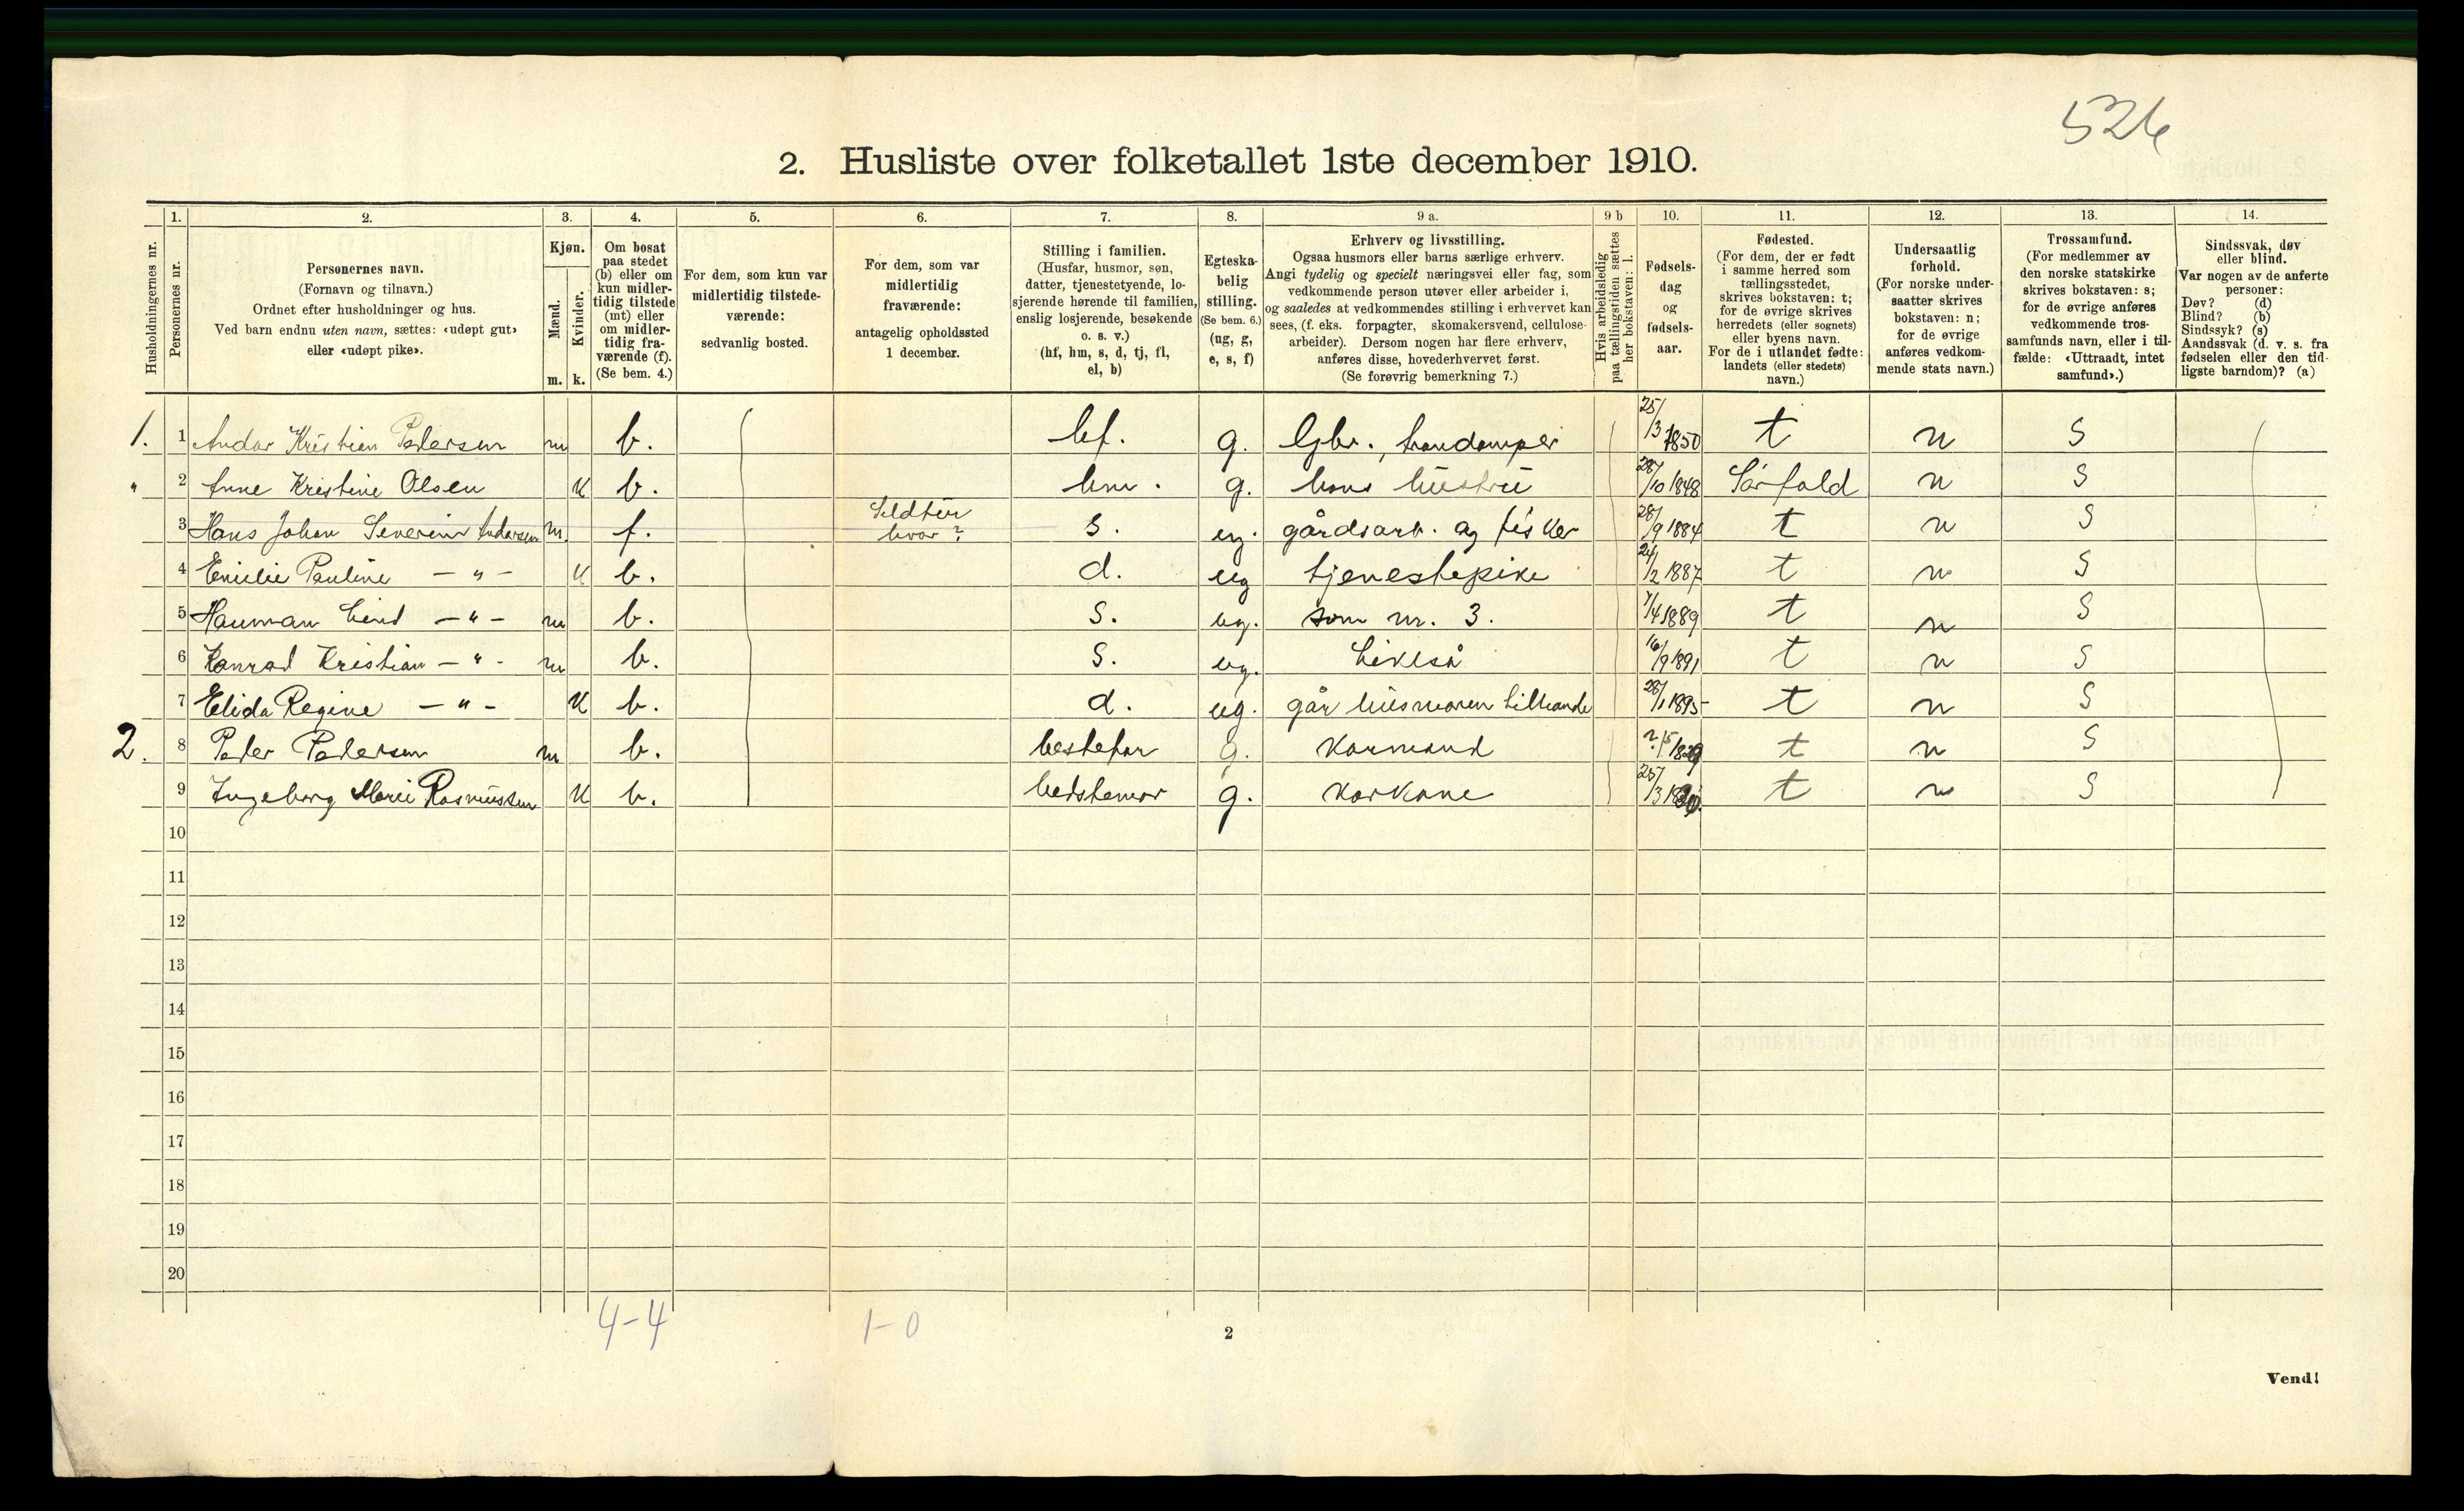 526
2. Husliste over folketallet 1ste december 1910.
1. 2. 3. 4. 5. 6. 7. 8. 9 a. 9 b 10. 11. 12. 13. 14.
Husholdningernes nr.
Personernes nr.
Personernes navn.
(Fornavn og tilnavn.)
Ordnet efter husholdninger og hus.
Ved barn endnu uten navn, sættes: «udøpt gut»
eller «udøpt pike».
Kjøn.
Mænd.
Kvinder.
m. k.
Om bosat
paa stedet
(b) eller om
kun midler-
tidig tilstede
(mt) eller
om midler-
tidig fra-
værende (f).
(Se bem. 4.)
For dem, som kun var
midlertidig tilstede-
værende:
sedvanlig bosted.
For dem, som var
midlertidig
fraværende:
antagelig opholdssted
1 december.
Stilling i familien.
(Husfar, husmor, søn,
datter, tjenestetyende, lo-
sjerende hørende til familien,
enslig losjerende, besøkende
o. s. v.)
(hf, hm, s, d, tj, fl,
el, b)
Egteska-
belig
stilling.
(Se bem. 6.)
(ug, g,
e, s, f)
Erhverv og livsstilling.
Ogsaa husmors eller barns særlige erhverv.
Angi tydelig og specielt næringsvei eller fag, som
vedkommende person utøver eller arbeider i,
og saaledes at vedkommendes stilling i erhvervet kan
sees, (f. eks. forpagter, skomakersvend, cellulose-
arbeider). Dersom nogen har flere erhverv,
anføres disse, hovederhvervet først.
(Se forøvrig bemerkning 7.)
Hvis arbeidsledig
paa tællingstiden sættes
her bokstaven: l.
Fødsels-
dag
og
fødsels-
aar.
Fødested.
(For dem, der er født
i samme herred som
tællingsstedet,
skrives bokstaven: t;
for de øvrige skrives
herredets (eller sognets)
eller byens navn.
For de i utlandet fødte:
landets (eller stedets)
navn.)
Undersaatlig
forhold.
(For norske under-
saatter skrives
bokstaven: n;
for de øvrige
anføres vedkom-
mende stats navn.)
Trossamfund.
(For medlemmer av
den norske statskirke
skrives bokstaven: s;
for de øvrige anføres
vedkommende tros-
samfunds navn, eller i til-
fælde: «Uttraadt, intet
samfund».)
Sindssvak, døv
eller blind.
Var nogen av de anførte
personer:
Døv? (d)
Blind? (b)
Sindssyk? (s)
Aandssvak (d. v. s. fra
fødselen eller den tid-
ligste barndom)? (a)
1. 1 Andor Kristian Pedersen m b. hf. g. Gbr., trandamper 25/3 1850 t n S
" 2 Anne Kristine Olsen K b. hm. g. hans hustru 28/10 1848 Sørfold n S
3 Hans Johan Severin Andorsen m. f. Sildtur hvor? s. ug. gårdsarb. og fisker 28/9 1884 t n S
4 Emilie Pauline — " — K b. d. ug tjenestepike 24/2 1887 t n S
5 Hauman Lind — " — m b. s. ug. som nr. 3. 7/4 1889 t n S
6 Konrad Kristian — " - m b. s. ug. Likeså 16/9 1891 t n S
7 Elida Regine — " — K b. d. ug. går husmoren tilhande 28/1 1895 t n S
2. 8 Peder Pedersen m b. bestefar g. Karmand ?/5 1829 t n S
9 Ingeborg Marie Rasmussen K b. bedstemor g. Karkone 25/3 t n S
10
11
12
13
14
15
16
17
18
19
20
4-4 1-0
2
Vend!